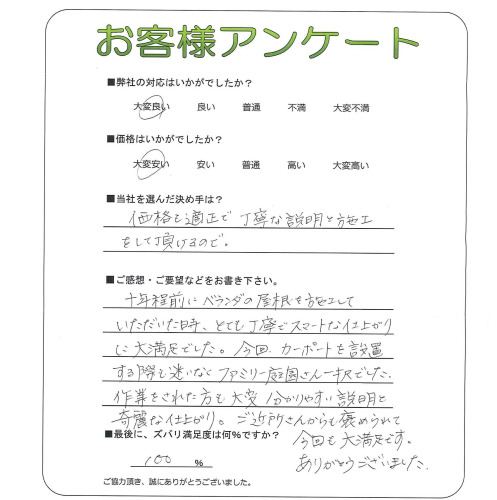 お客様アンケート
■弊社の対応はいかがでしたか？
大変良い 良い 普通 不満 大変不満
■価格はいかがでしたか？
大変安い 安い 普通 高い 大変高い
■当社を選んだ決め手は？
価格も適正で丁寧な説明と施工
をして頂けるので。
■ご感想・ご要望などをお書き下さい。
十年程前にベランダの屋根を施工して
いただいた時、とても丁寧でスマートな仕上がり
に大満足でした。今回、カーポートを設置
する際も迷いなくファミリー庭園さん一択でした。
作業をされた方も大変分かりやすい説明と
綺麗な仕上がり。ご近所さんからも褒められて
今回も大満足です。
ありがとうございました。
■最後に、ズバリ満足度は何%ですか？
100 %
ご協力頂き、誠にありがとうございました。